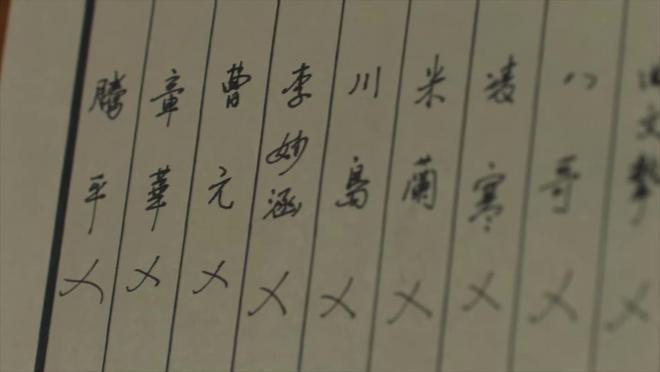 文
八哥
凌寒
米蘭
川島
李妙涵
曹元
章華
騰平